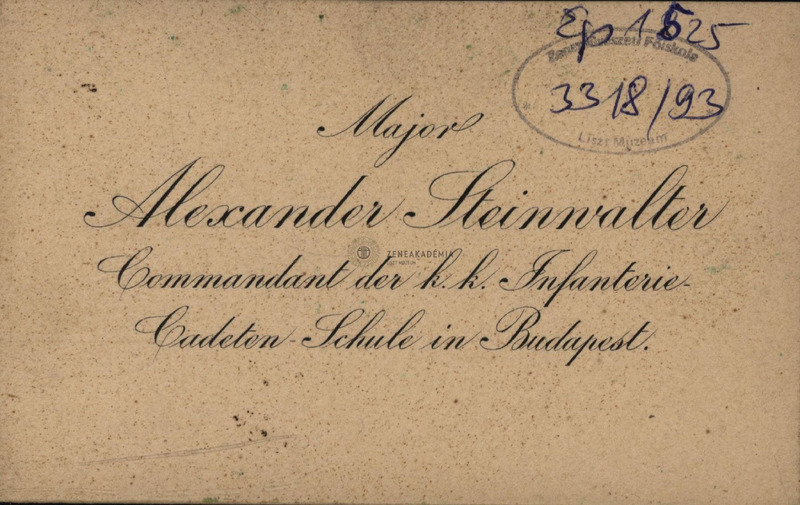 Ep 1525
Zeneművészeti Főiskola
3318/93
Liszt Múzeum
Major
Alexander Steinwalter
ZENEAKADÉMIA
Commandant der k. k. Infanterie-
Cadeten-Schule in Budapest.